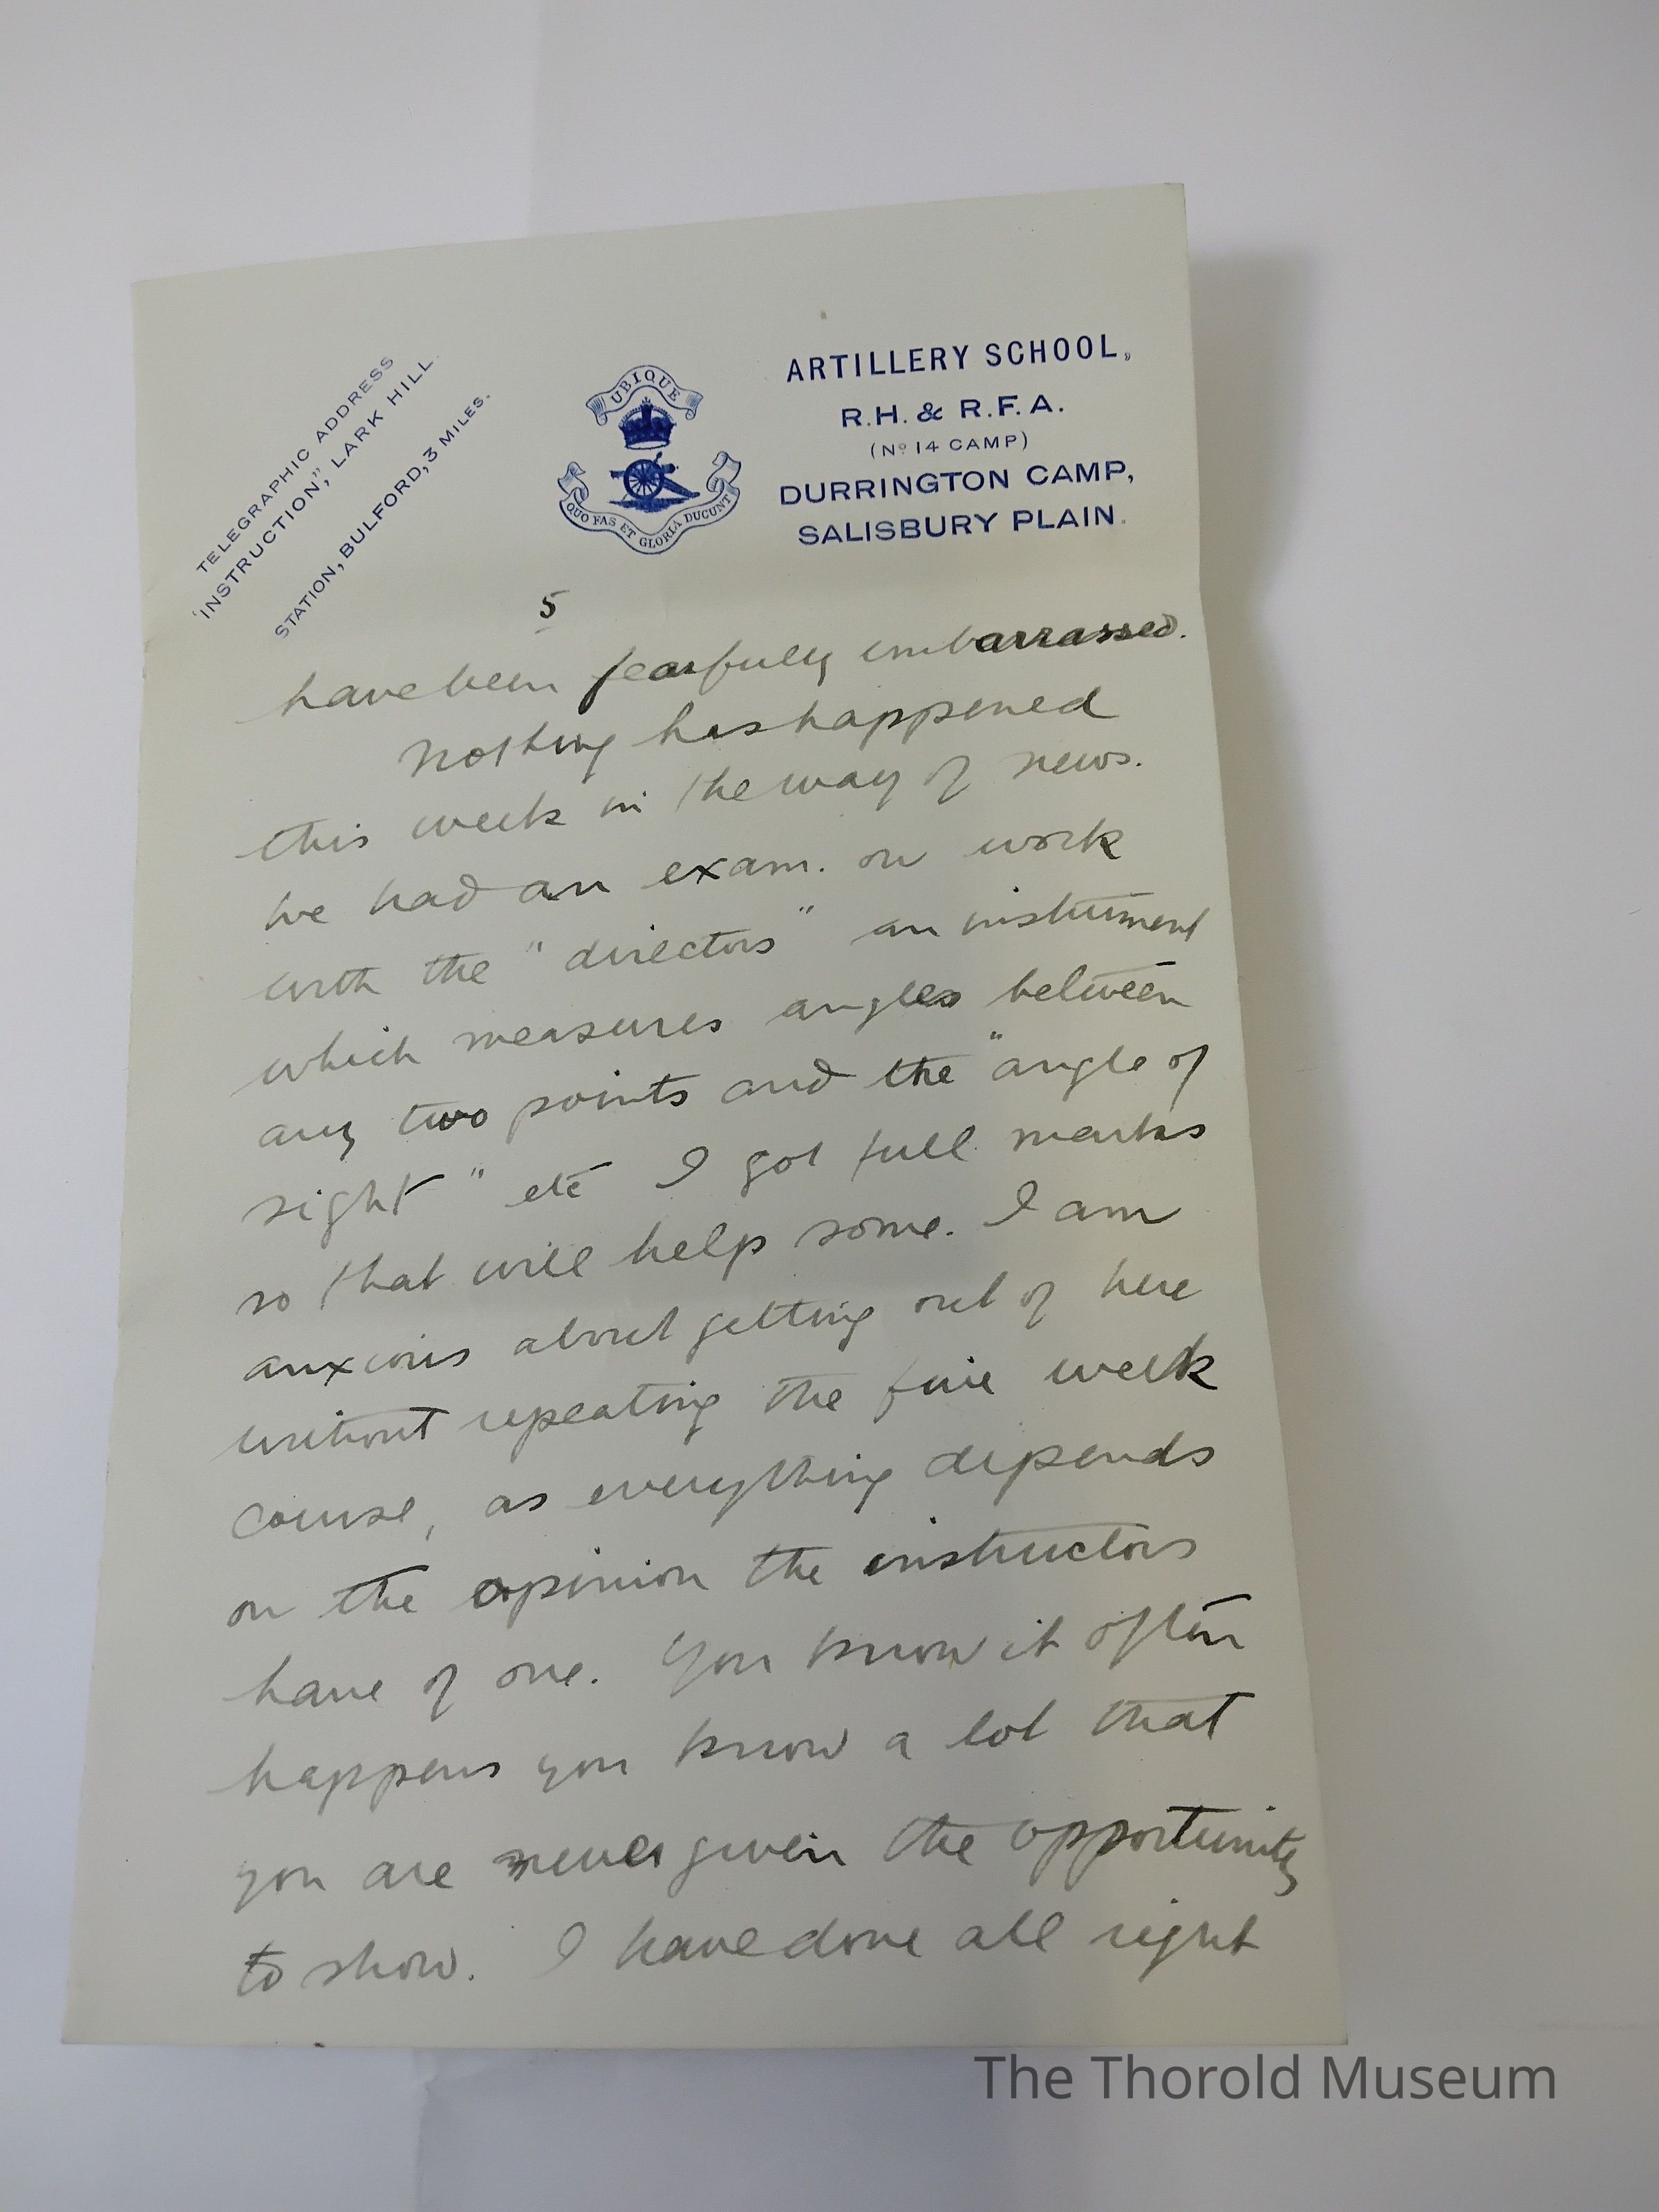 TELEGRAPHIC ADDRESS
"INSTRUCTION," LARK HILL.
STATION, BULFORD, 3 MILES.
UBIQUE
QUO FAS ET GLORIA DUCUNT
ARTILLERY SCHOOL,
R.H. & R.F.A.
(No 14 CAMP)
DURRINGTON CAMP,
SALISBURY PLAIN.
5
have been fearfully embarrassed.
Nothing has happened
this week in the way of news.
We had an exam. on work
with the "directors" an instrument
which measures angles between
any two points and the "angle of
sight" etc I got full marks
so that will help some. I am
anxious about getting out of here
without repeating the five week
course, as everything depends
on the opinion the instructors
have of one. You know it often
happens you know a lot that
you are never given the opportunity
to show. I have done all right
The Thorold Museum